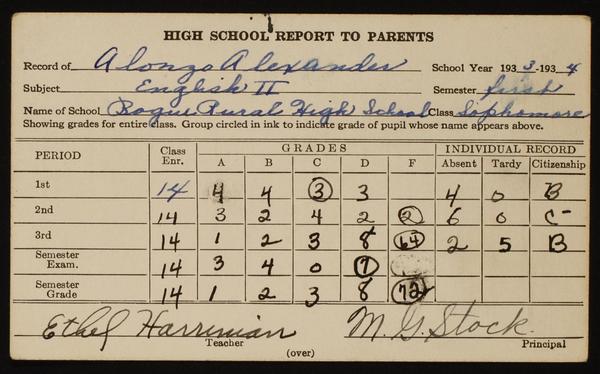 HIGH SCHOOL REPORT TO PARENTS
Record of Alonzo Alexander School Year 1933-1934
Subject English II Semester first
Name of School Bogue Rural High School Class Sophomore
Showing grades for entire class. Group circled in ink to indicate grade of pupil whose name appears above.
PERIOD Class Enr. GRADES INDIVIDUAL RECORD
A B C D F Absent Tardy Citizenship
1st 14 4 4 3 3 4 0 B
2nd 14 3 2 4 2 2 6 0 C-
3rd 14 1 2 3 8 64 2 5 B
Semester Exam. 14 3 4 0 7
Semester Grade 14 1 2 3 8 72
Ethel Harriman M. G. Stock.
Teacher Principal
(over)